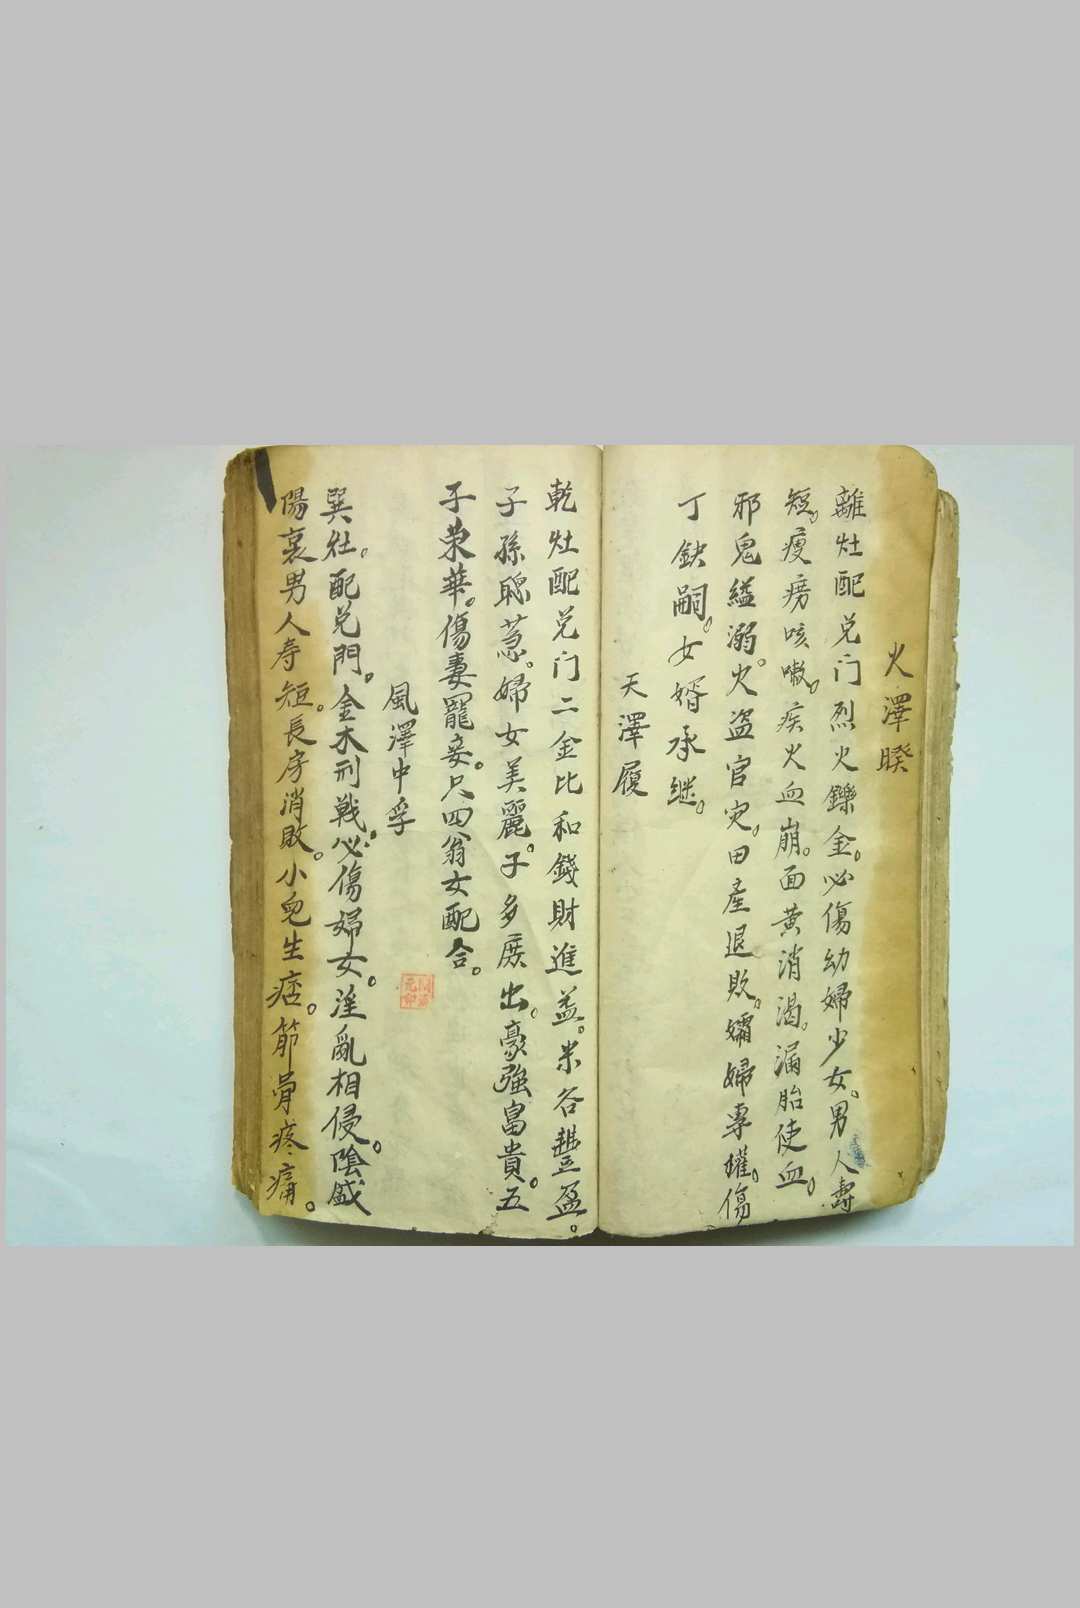 火澤睽
離灶配兑门烈火鑠金。必傷幼婦少女。男人壽
短。瘦痨咳嗽。疾火血崩。面黄消渴。漏胎使血。
邪鬼縊溺。火盗官灾。田產退敗。孀婦專權。傷
丁缺嗣。女婿承继。
天澤履
乾灶配兑门二金比和錢財進益。米谷豐盈。
子孫聪慧。婦女美麗。子多庶出。豪強富貴。五
子荣華。傷妻寵妾。只四翁女配合。
風澤中孚
巽灶。配兑門。金木刑戦。必傷婦女。淫亂相侵。陰盛
陽衰男人寿短。長房消敗。小兒生痞。節骨疼痛。